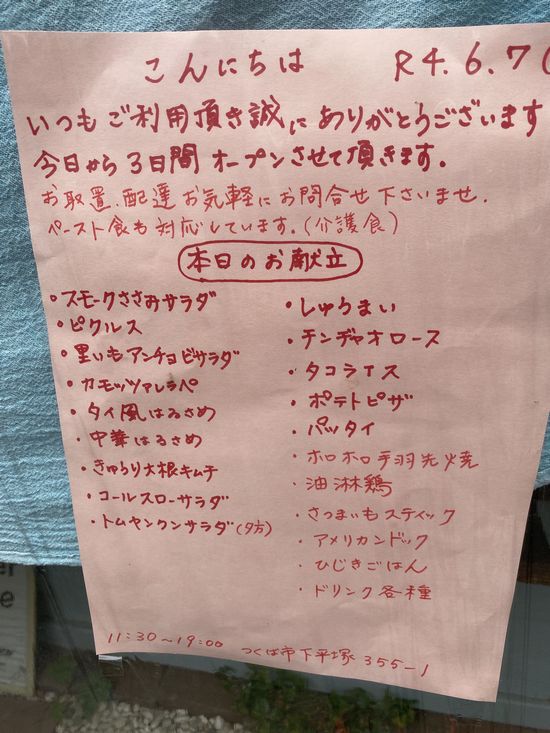 こんにちは R4.6.7(
いつもご利用頂き誠にありがとうございます
今日から3日間オープンさせて頂きます.
お取置、配達お気軽にお問合せ下さいませ.
ペースト食も対応しています.(介護食)
本日のお献立
・スモークささみサラダ
・ピクルス
・里いもアンチョビサラダ
・カモッツァレラペ
・タイ風はるさめ
・中華はるさめ
・きゅうり大根キムチ
・コールスローサラダ
・トムヤンクンサラダ(夕方)
・しゅうまい
・チンヂャオロース
・タコライス
・ポテトピザ
・パッタイ
・ホロホロ手羽先焼
・油淋鶏
・さつまいもスティック
・アメリカンドック
・ひじきごはん
・ドリンク各種
11:30~19:00 つくば市下平塚355-1